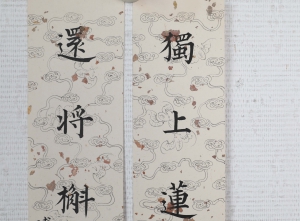 獨上蓮
還将槲